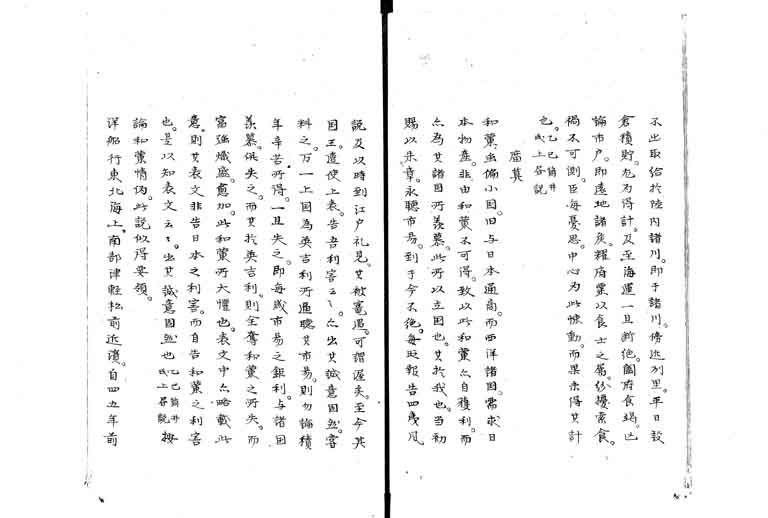 不出取給於陸内諸川。即于諸川。傍近列里。平日設
倉積貯。尤為得計。及至海運一旦断絶。闔府食竭。已
論市戸。即遠地諸矦。糴府粟以食士之属。紛擾索食。
禍不可測。臣毎憂思。中心為此慄動。而果未得其計
也。乙巳筒井
氏上答説
腐莫
和蘭虫偏小国。旧与日本通商。而西洋諸国。需求日
本物産。非由和蘭不可得。致以此和蘭亦自獲利。而
亦為其諸国所羨慕。此所以立国也。其於我也。当初
賜以朱章。永聴市易。到于今不絶。毎以報告四夷凡
説及以時到江戸礼見。其被寵遇。可謂渥矣。至今其
国王。遣使上表。告吾利害云々。亦出其誠意固然。窃
料之。万一上国為英吉利所逼。聴其市易。則勿論積
年辛苦所得。一旦失之。即毎歳市易之鉅利。与諸国
羨慕。倶失之。而其於英吉利。則全奪和蘭之所失。而
富強熾盛愈加。此和蘭所大懼也。表文中亦略載此
意。則其表文非告日本之利害。而自告和蘭之利害
也。是以知表文云々。出其誠意固然也 乙巳筒井
氏上答説 按
論和蘭情偽。此説似得要領。
洋舶行東北海上。南部津軽松前近瀕。自四五年前